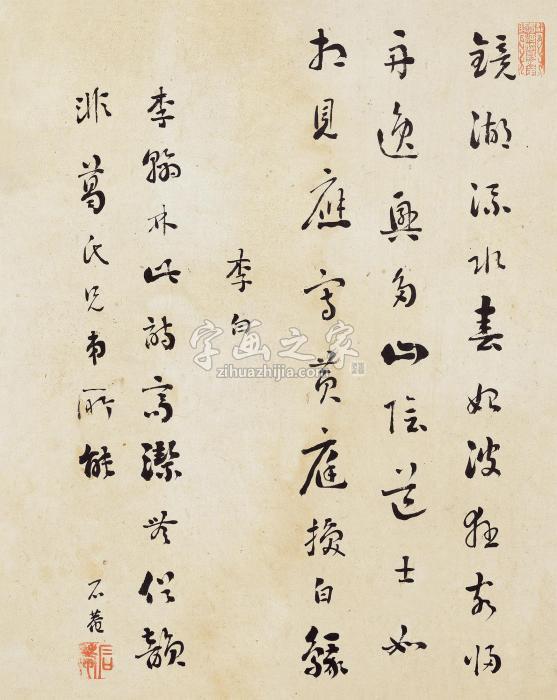 鏡湖流水春始波狂客歸
舟逸興多山陰道士如
相見應寫黃庭換白鵝
李白
李翰林此詩高潔無俗韻
非葛氏兄弟所能
石菴
字画之家
zihuazhijia.com